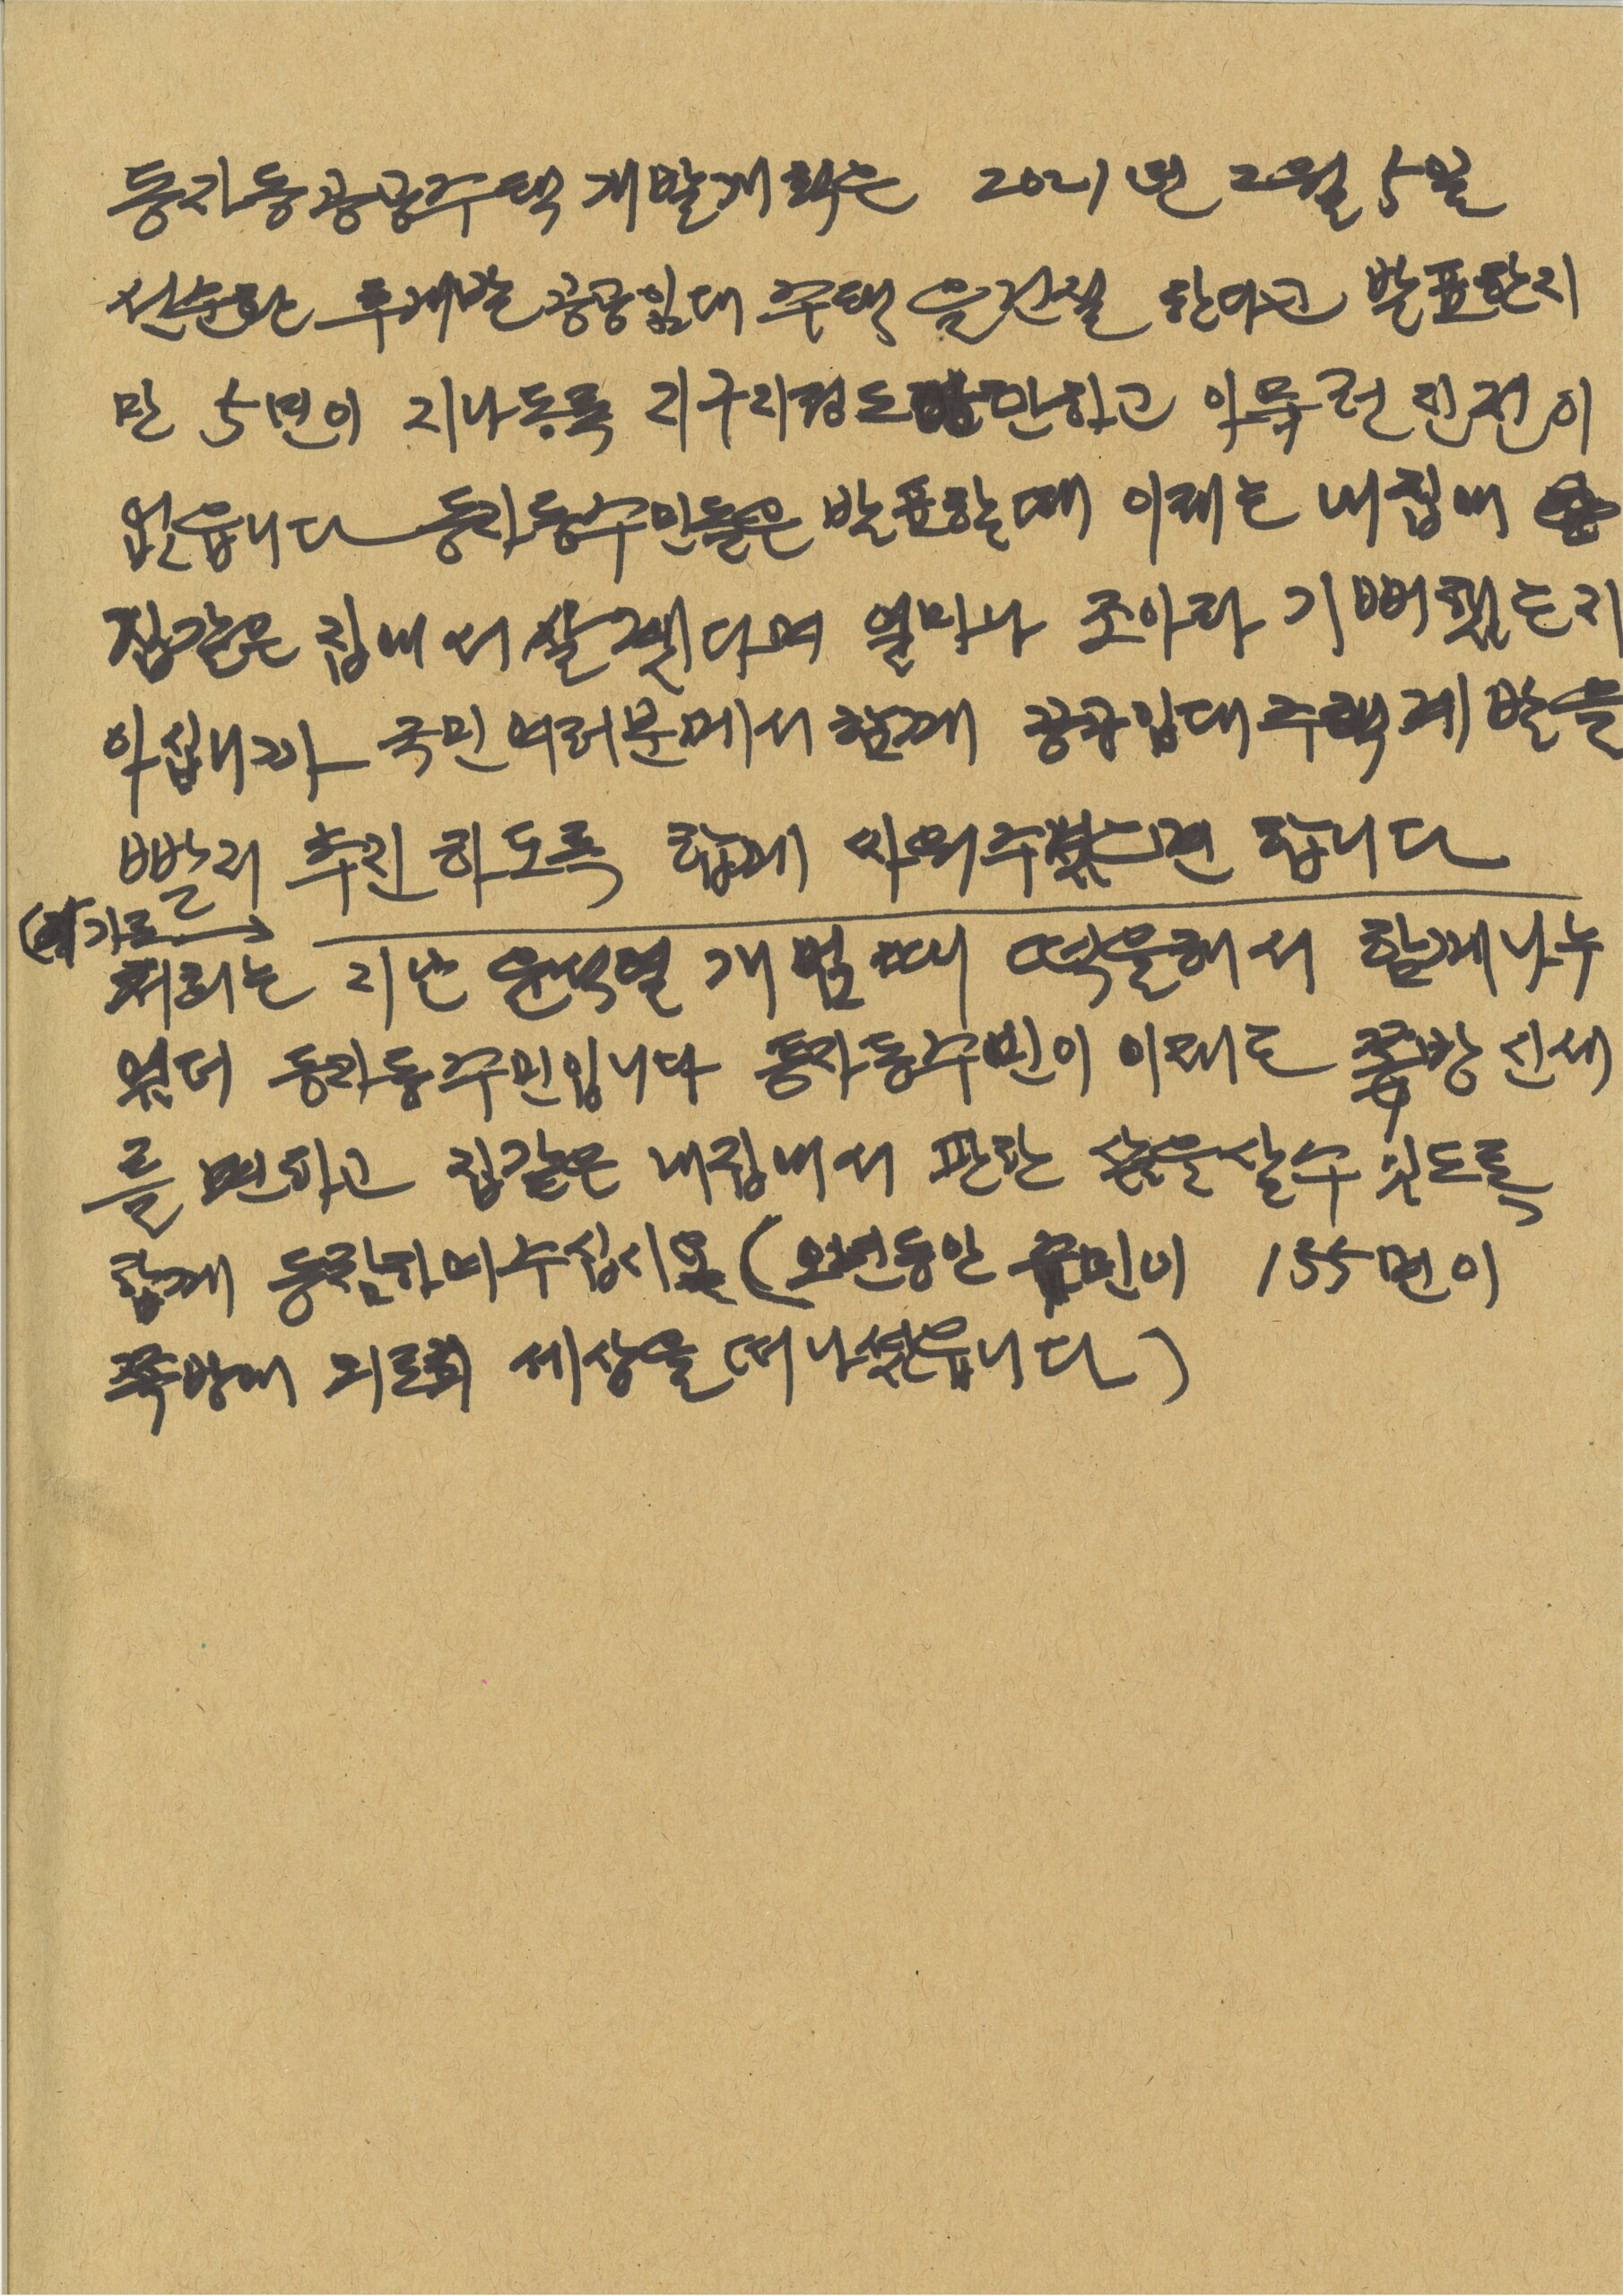 동자동공공주택 개발개획은 2021년 2월 5일
선순환 후개발 공공임대 주택 을건설 한다고 발표한지
만 5년이 지나동록 지구지정도 만하고 아무런 진전이
없습니다 동자동주민들은 발표할때 이제는 내집내
집같은 집내서 살겠다며 얼마나 조아라 기뻐했는지
아십니까 국민 여러분께서 함께 공공임대주택 계발을
빨리 추진 하도록 함께 싸워주셨으면 합니다
(가로
저희는 지난 윤석열 개엄때 떡을해서 함께나누
웠더 동자동 주민입니다 동자동주민이 이재는 쪽방 신세
를 면하고 집같은 내집내서 편한 삶을살수 있도록
함께 동참하여주십시요 (오년동안 주민이 155명이
쪽방에 외로히 세상을 떠나셨습니다)